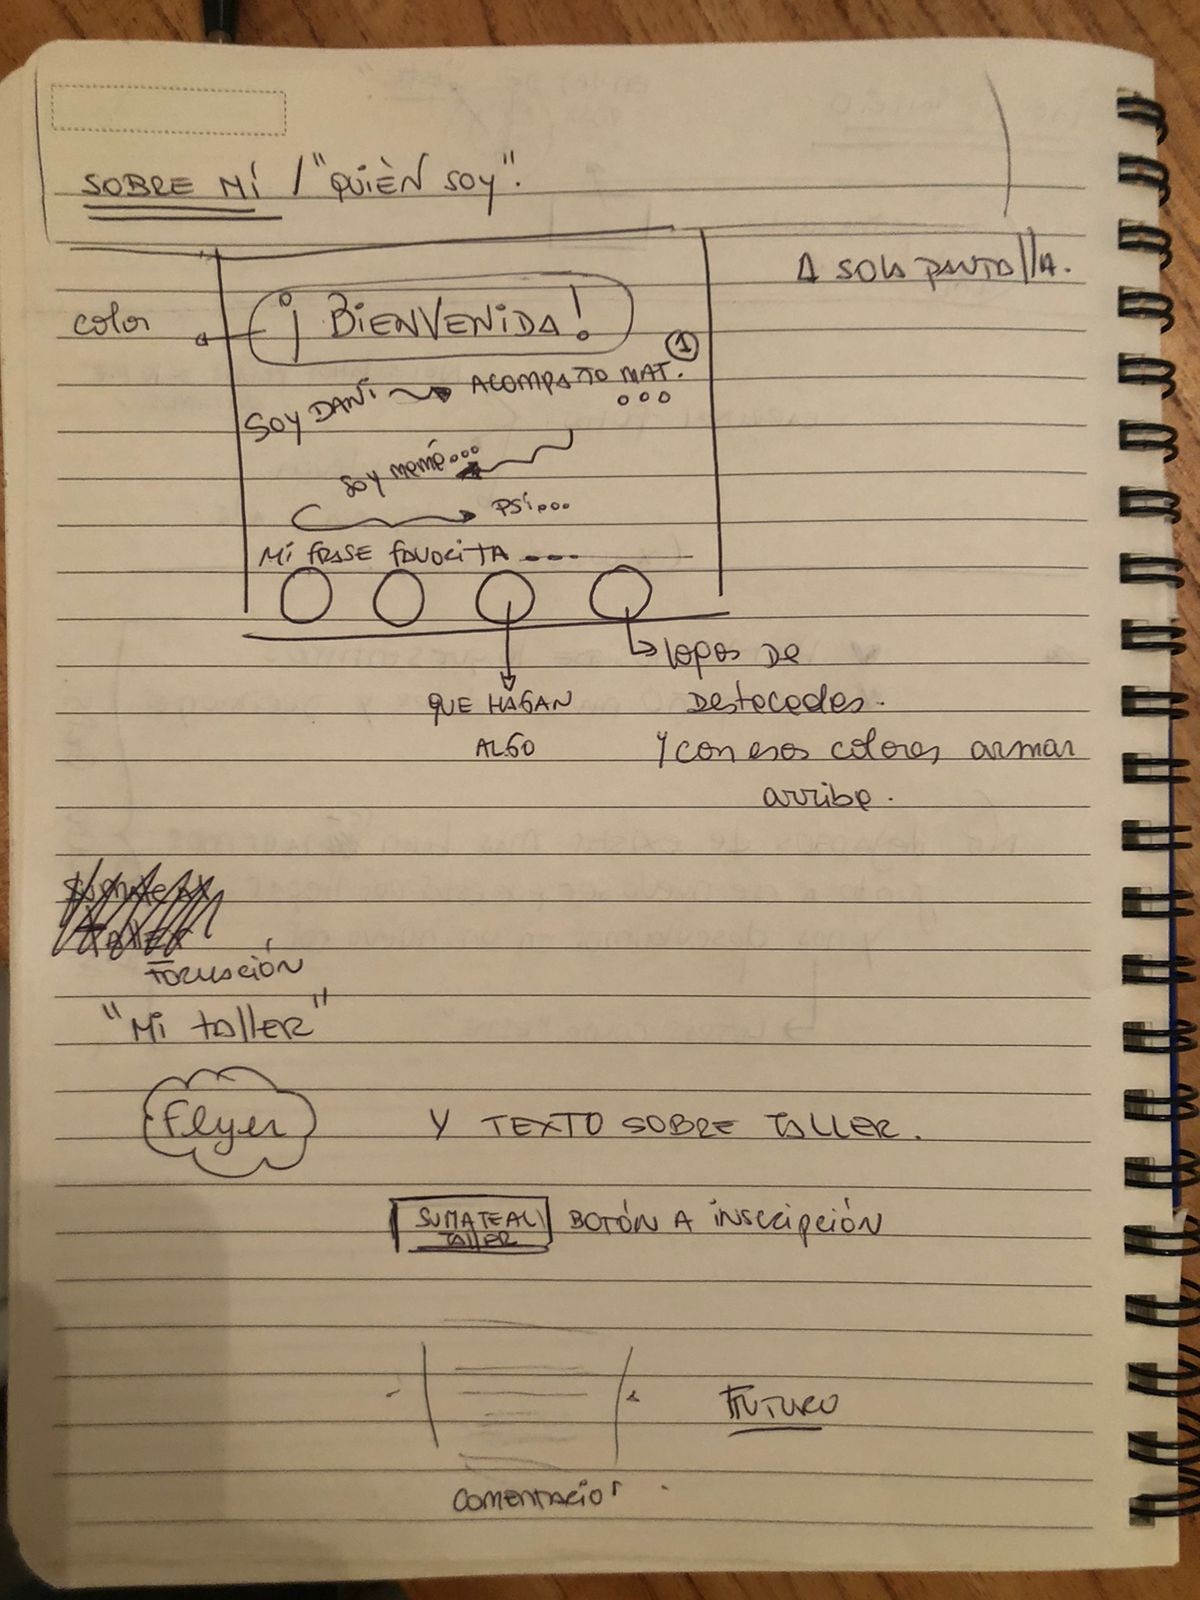 SOBRE MÍ / "QUIÈN SOY".
A SOLA PANTALLA.
color
¡BIENVENIDA!
SOY DANI → ACOMPAÑO MAT. ①
...
SOY mamá...
PSi...
Mi FRASE FAVORITA ----
logos DE
QUE HAGAN
Destacados.
ALGO
Y con esos colores armar
arriba.
FORMACIÓN
"Mi TALLER"
Flyer
Y TEXTO SOBRE TALLER.
SUMATE AL
TALLER
BOTÓN A inscripción
FUTURO